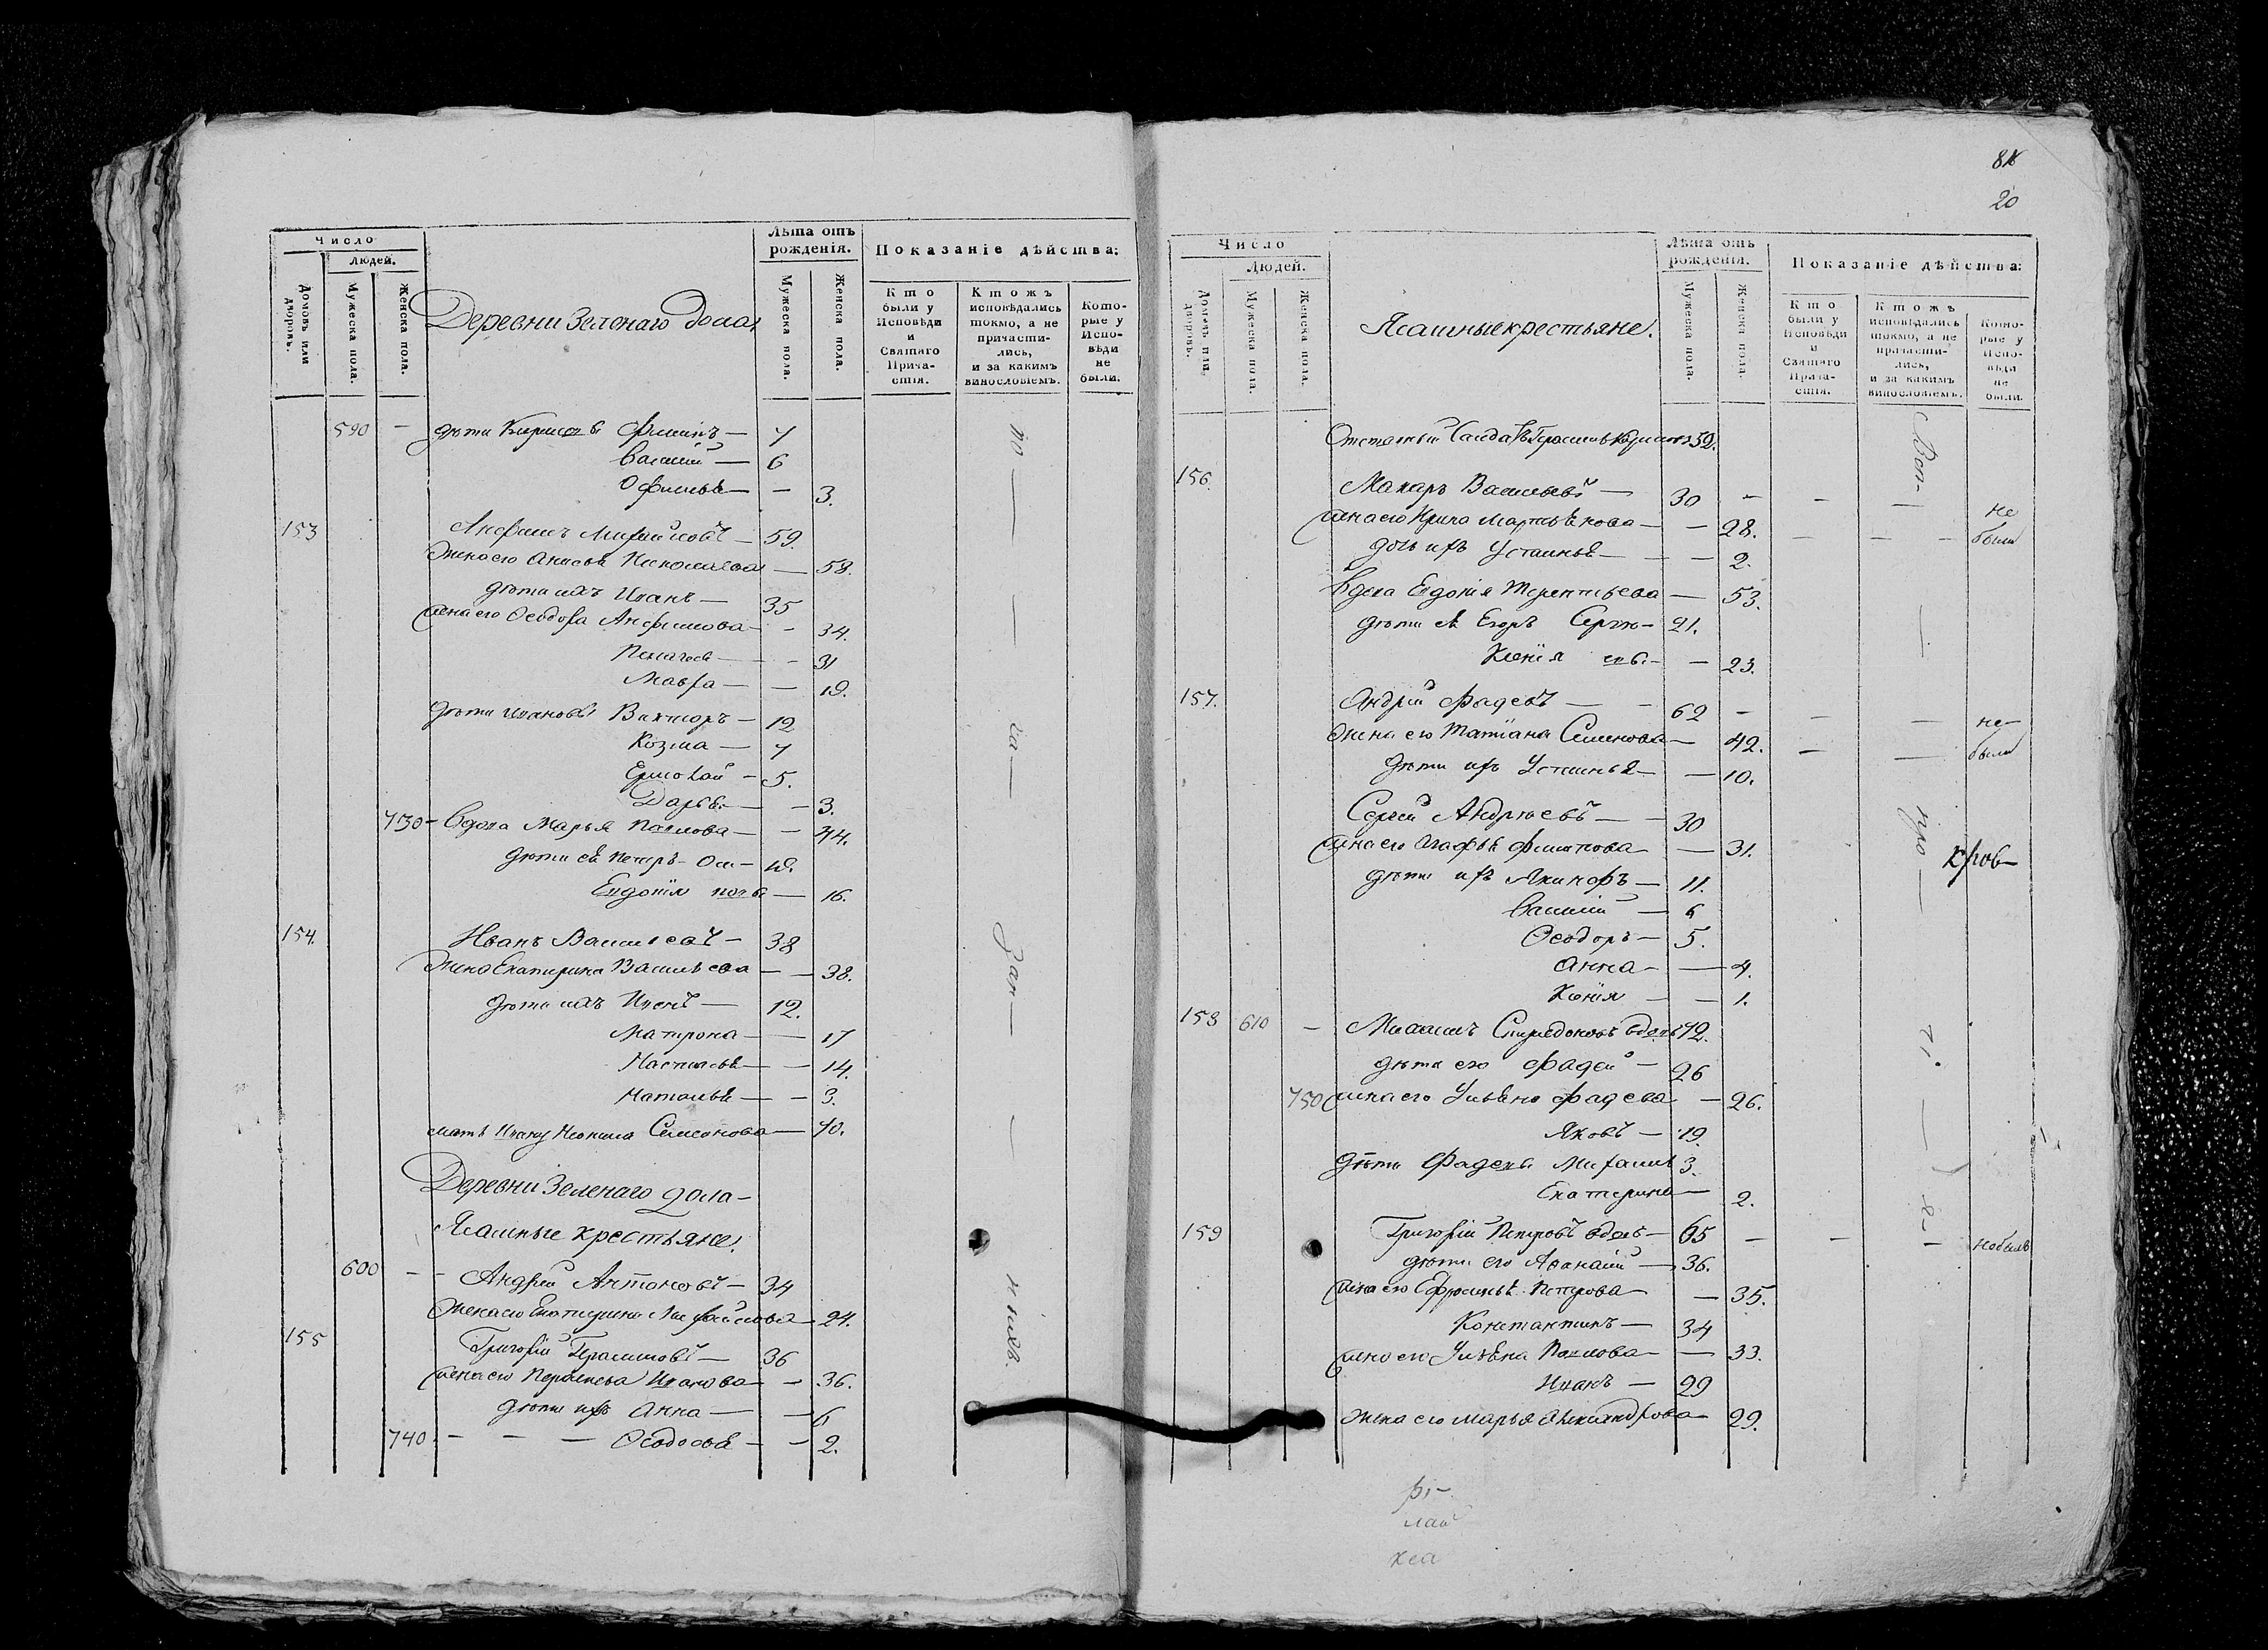 Число
Людей.
Домовъ или дворовъ.
Мужеска пола.
Женска пола.
Деревни Зеленаго Дола
Лѣта отъ рожденія.
Мужеска пола.
Женска пола.
Показаніе дѣйства:
Кто были у Исповѣди и Святаго Причастія.
Ктожъ исповѣдались токмо, а не причастились, и за какимъ винословіемъ.
Которые у Исповѣди не были.
590 — дѣти 7
Василий — 6
Офимья — — 3.
153 Анфимъ — 59.
Жена его Анисья — 58.
дѣти ихъ Иванъ — 35
жена его Ѳеодора Анфимова — — 34.
Пелагея — — 31
Мавра — — 19.
дѣти Ивановы Викторъ — 12
Козма — 7
Ермолай — 5.
Дарья — — 3.
730 — вдова Марья Павлова — — 44.
дѣти ея Петръ —
Евдокія — 16.
154. Иванъ Васильевъ — 38
Жена Екатерина Васильева — — 38.
дѣти ихъ — 12.
Матрона — — 17
Настасья — — 14.
Наталья — — 3.
мать Семенова — 70.
Деревни Зеленаго дола —
Ясашные крестьяне.
600 — — Андрей Антоновъ — 34
Жена его Екатерина — 24.
155 Григорій Герасимовъ — 36
жена его Иванова — — 36.
дѣти ихъ Анна — — 6
740. — — — Ѳеодосья — — 2.
8
20
Число
Людей.
Домовъ или дворовъ.
Мужеска пола.
Женска пола.
Ясашные крестьяне.
Лѣта отъ рожденія.
Мужеска пола.
Женска пола.
Показаніе дѣйства:
Кто были у Исповѣди и Святаго Причастія.
Ктожъ исповѣдались токмо, а не причастились, и за какимъ винословіемъ.
Которые у Исповѣди не были.
Отставный 59.
156. Макаръ Васильевъ — 30 — — — не
жена его — — 28. — — — были
дочь ихъ Устинья — — 2.
вдова Евдокія Терентьева — 53.
дѣти ея Егоръ — 21.
Ксенія — — 23.
157. Андрей Фадеевъ — — 62 — — — не
жена его Татіана Семенова — 42. — — были
дѣти ихъ Устинья — — 10.
Сергей Андреевъ — — 30
жена его Агафья Филипова — — 31.
дѣти ихъ Акинфъ — 11.
Василий — 6
Ѳеодоръ — 5.
Анна — — 4.
Ксенія — — 1.
158 610 — Михаилъ вдовъ 72.
дѣти его Фадей — 26
750 жена его Ульяна Фадеева — 26.
Яковъ — 19.
дѣти Фадеевы Михаилъ 3.
Екатерина — 2.
159 Григорій Петровъ вдовъ — 65 — — — небылъ
дѣти его Аѳанасій — 36.
жена его Ефросинья Петрова — — 35.
Константинъ — 34
жена его Ульяна Павлова — — 33.
Иванъ — 29
жена его Марья Александрова — 29.